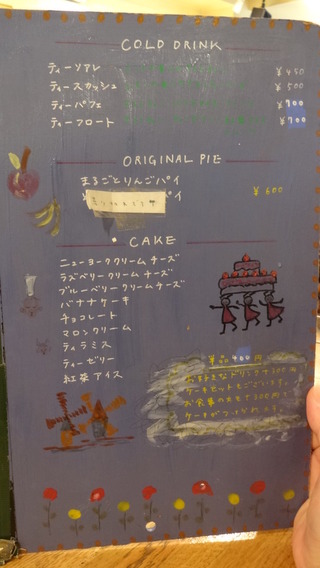 COLD DRINK
ティーソアレ ¥450
ティースカッシュ ¥500
ティーパフェ ¥700
ティーフロート ¥700
ORIGINAL PIE
まるごとりんごパイ
パイ ¥600
CAKE
ニューヨーククリームチーズ
ラズベリークリームチーズ
ブルーベリークリームチーズ
バナナケーキ
チョコレート
マロンクリーム
ティラミス
ティーゼリー
紅茶アイス
¥400円
お好きなドリンク+300円
ケーキセットもございます。
お食事の方も+300円で
ケーキが